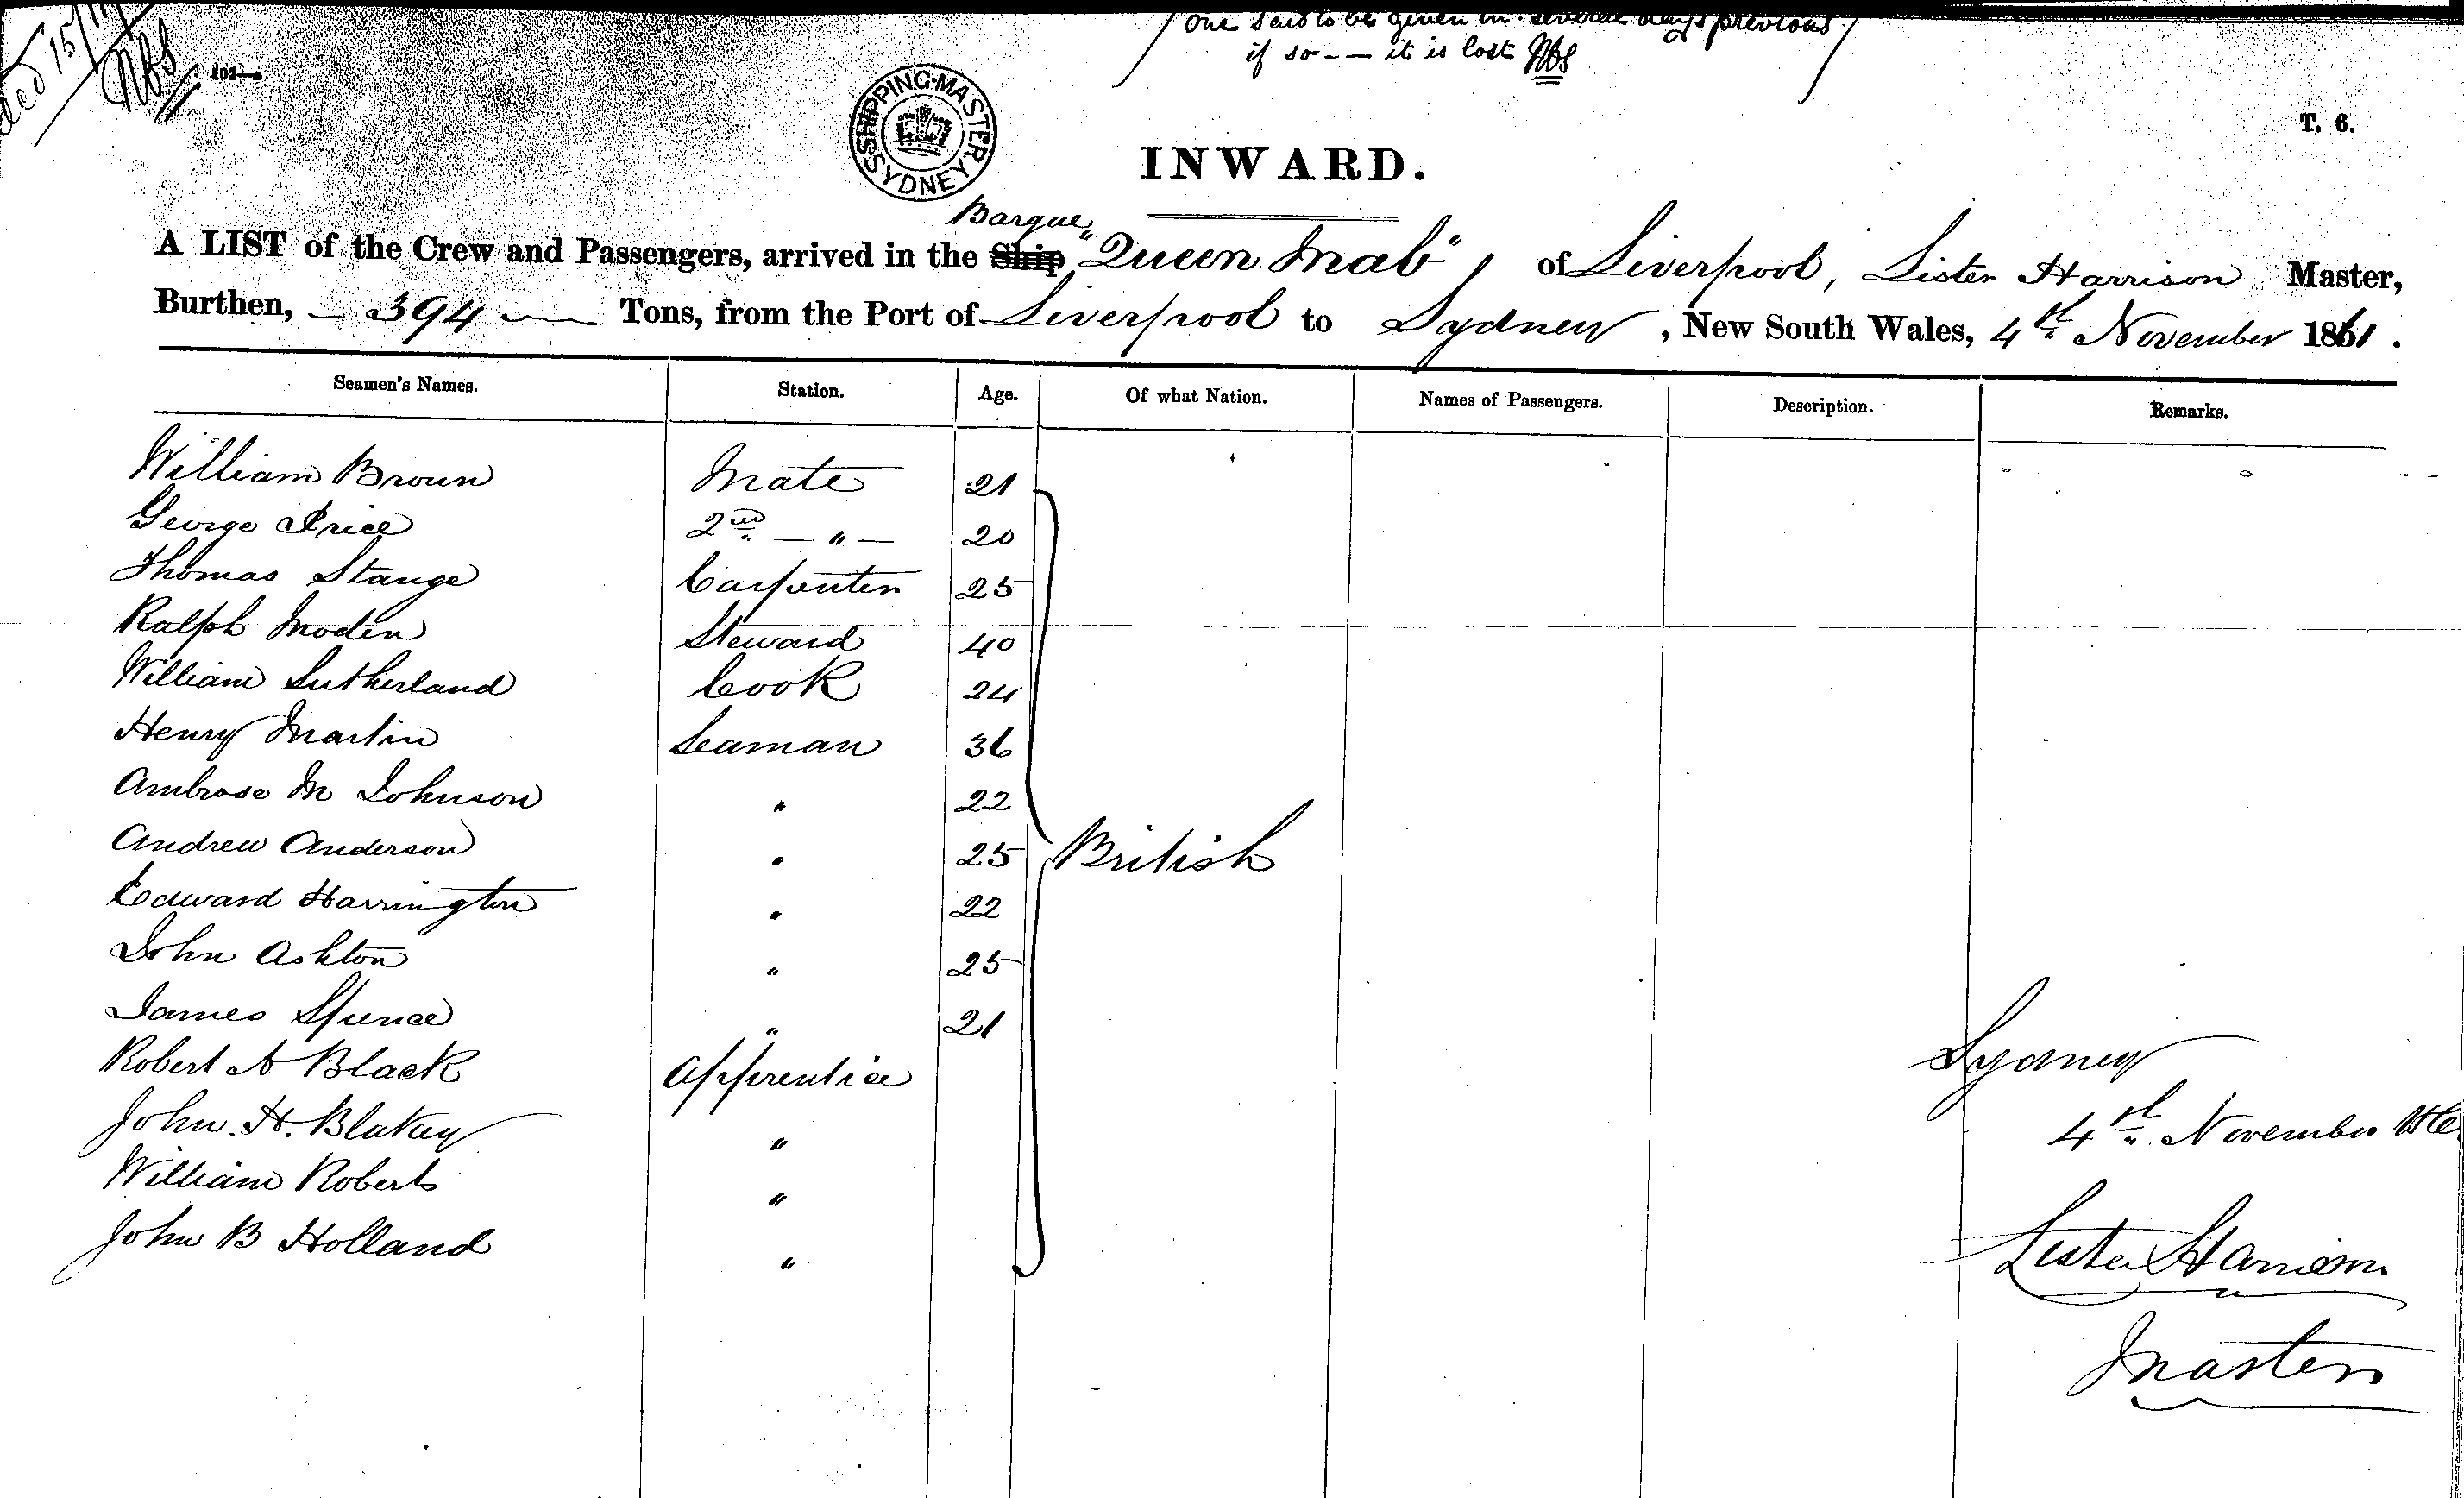 one said to be given in several days previous
if so -- it is lost
15/11
T. 6.
SHIPPING MASTER SYDNEY
INWARD.
Barque
A LIST of the Crew and Passengers, arrived in the Ship "Queen Mab", of Liverpool, Lister Harrison Master,
Burthen, 394 Tons, from the Port of Liverpool to Sydney, New South Wales, 4th November 1861.
Seamen's Names. Station. Age. Of what Nation. Names of Passengers. Description. Remarks.
William Brown Mate 21
George Price 2nd — " — 20
Thomas Stange Carpenter 25
Ralph Moden Steward 40
William Sutherland Cook 24
Henry Martin Seaman 36
Ambrose M Johnson " 22
Andrew Anderson " 25 British
Edward Harrington " 22
John Ashton " 25
James Spence " 21
Robert A Black Apprentice
Sydney
John. H. Blakey "
4th November
William Roberts "
John B Holland "
Lister Harrison
Master